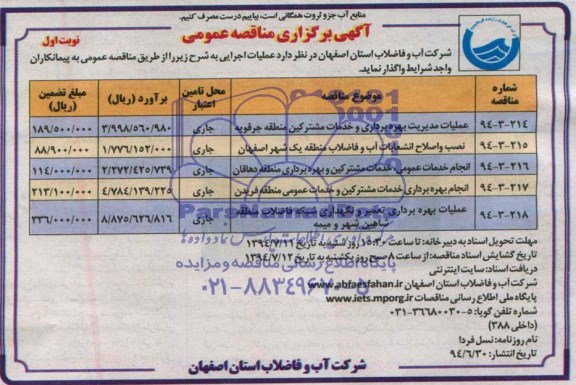 منابع آب جزو ثروت همگانی است، بیاییم درست مصرف کنیم.
آگهی برگزاری مناقصه عمومی
نوبت اول
شرکت آب و فاضلاب استان اصفهان در نظر دارد عملیات اجرایی به شرح زیر را از طریق مناقصه عمومی به پیمانکاران
واجد شرایط واگذار نماید.
شماره مناقصه موضوع مناقصه محل تامین اعتبار برآورد (ریال) مبلغ تضمین (ریال)
۹۴-۳-۲۱۴ عملیات مدیریت بهره برداری و خدمات مشترکین منطقه جرقویه جاری ۳/۹۹۸/۵۶۰/۹۸۰ ۱۸۹/۵۰۰/۰۰۰
۹۴-۳-۲۱۵ نصب واصلاح انشعابات آب و فاضلاب منطقه یک شهر اصفهان جاری ۱/۷۷۶/۱۵۲/۰۰۰ ۸۸/۹۰۰/۰۰۰
۹۴-۳-۲۱۶ انجام خدمات عمومی، مشترکین و بهره برداری منطقه دهاقان جاری ۲/۲۷۲/۴۲۵/۷۳۹ ۱۱۴/۰۰۰/۰۰۰
۹۴-۳-۲۱۷ انجام بهره برداری خدمات مشترکین و خدمات عمومی منطقه فریدن جاری ۴/۷۸۴/۱۳۹/۲۲۵ ۲۱۳/۱۰۰/۰۰۰
۹۴-۳-۲۱۸ عملیات بهره برداری، تعمیر و نگهداری شبکه فاضلاب منطقه شاهین شهر و میمه جاری ۸/۸۷۵/۶۲۶/۸۱۶ ۳۳۶/۰۰۰/۰۰۰
مهلت تحویل اسناد به دبیرخانه: تا ساعت ۱۵:۳۰ روز شنبه به تاریخ ۱۳۹۴/۷/۱۱
تاریخ گشایش اسناد مناقصه: از ساعت ۸ صبح روز یکشنبه به تاریخ ۱۳۹۴/۷/۱۲
دریافت اسناد: سایت اینترنتی
شرکت آب و فاضلاب استان اصفهان www.abfaesfahan.ir
پایگاه ملی اطلاع رسانی مناقصات www.iets.mporg.ir
شماره تلفن گویا: ۵-۳۶۶۸۰۰۳۰-۰۳۱
(داخلی ۳۸۸)
نام روزنامه: نسل فردا
تاریخ انتشار: ۹۴/۶/۳۰
شرکت آب و فاضلاب استان اصفهان
پایگاه اطلاع رسانی مناقصه و مزایده